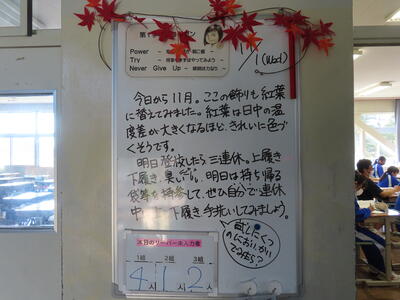 Power
Try
Never Give Up
11/1(Wed)
今日から11月。ここの飾りも紅葉
に替えてみました。紅葉は日中の温
度差が大きくなるほど、きれいに色づ
くそうです。
明日登校したら三連休。上履き
下履き、臭い
明日は持ち帰る
袋等を持参して、ぜひ自分で連休
中
下履き手洗いしてみましょう。
試しにくつ
のにおいかい
でみたら？
本日のリーバー未入力者
1組 2組 3組
4人 1人 2人